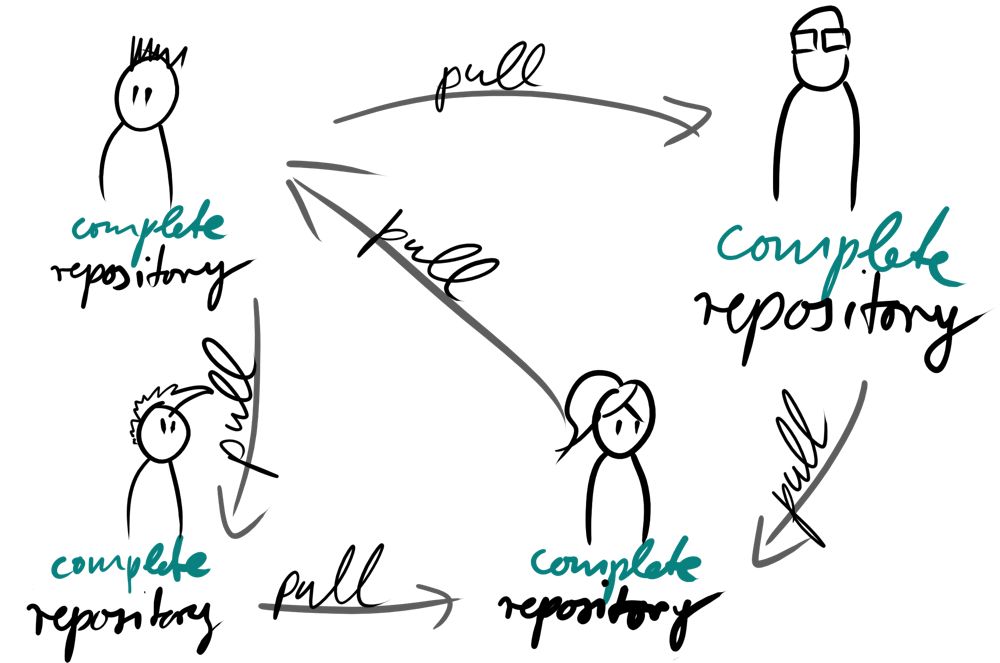 pull
complete
repository
complete
repository
pull
pull
pull
complete
repository
pull
complete
repository